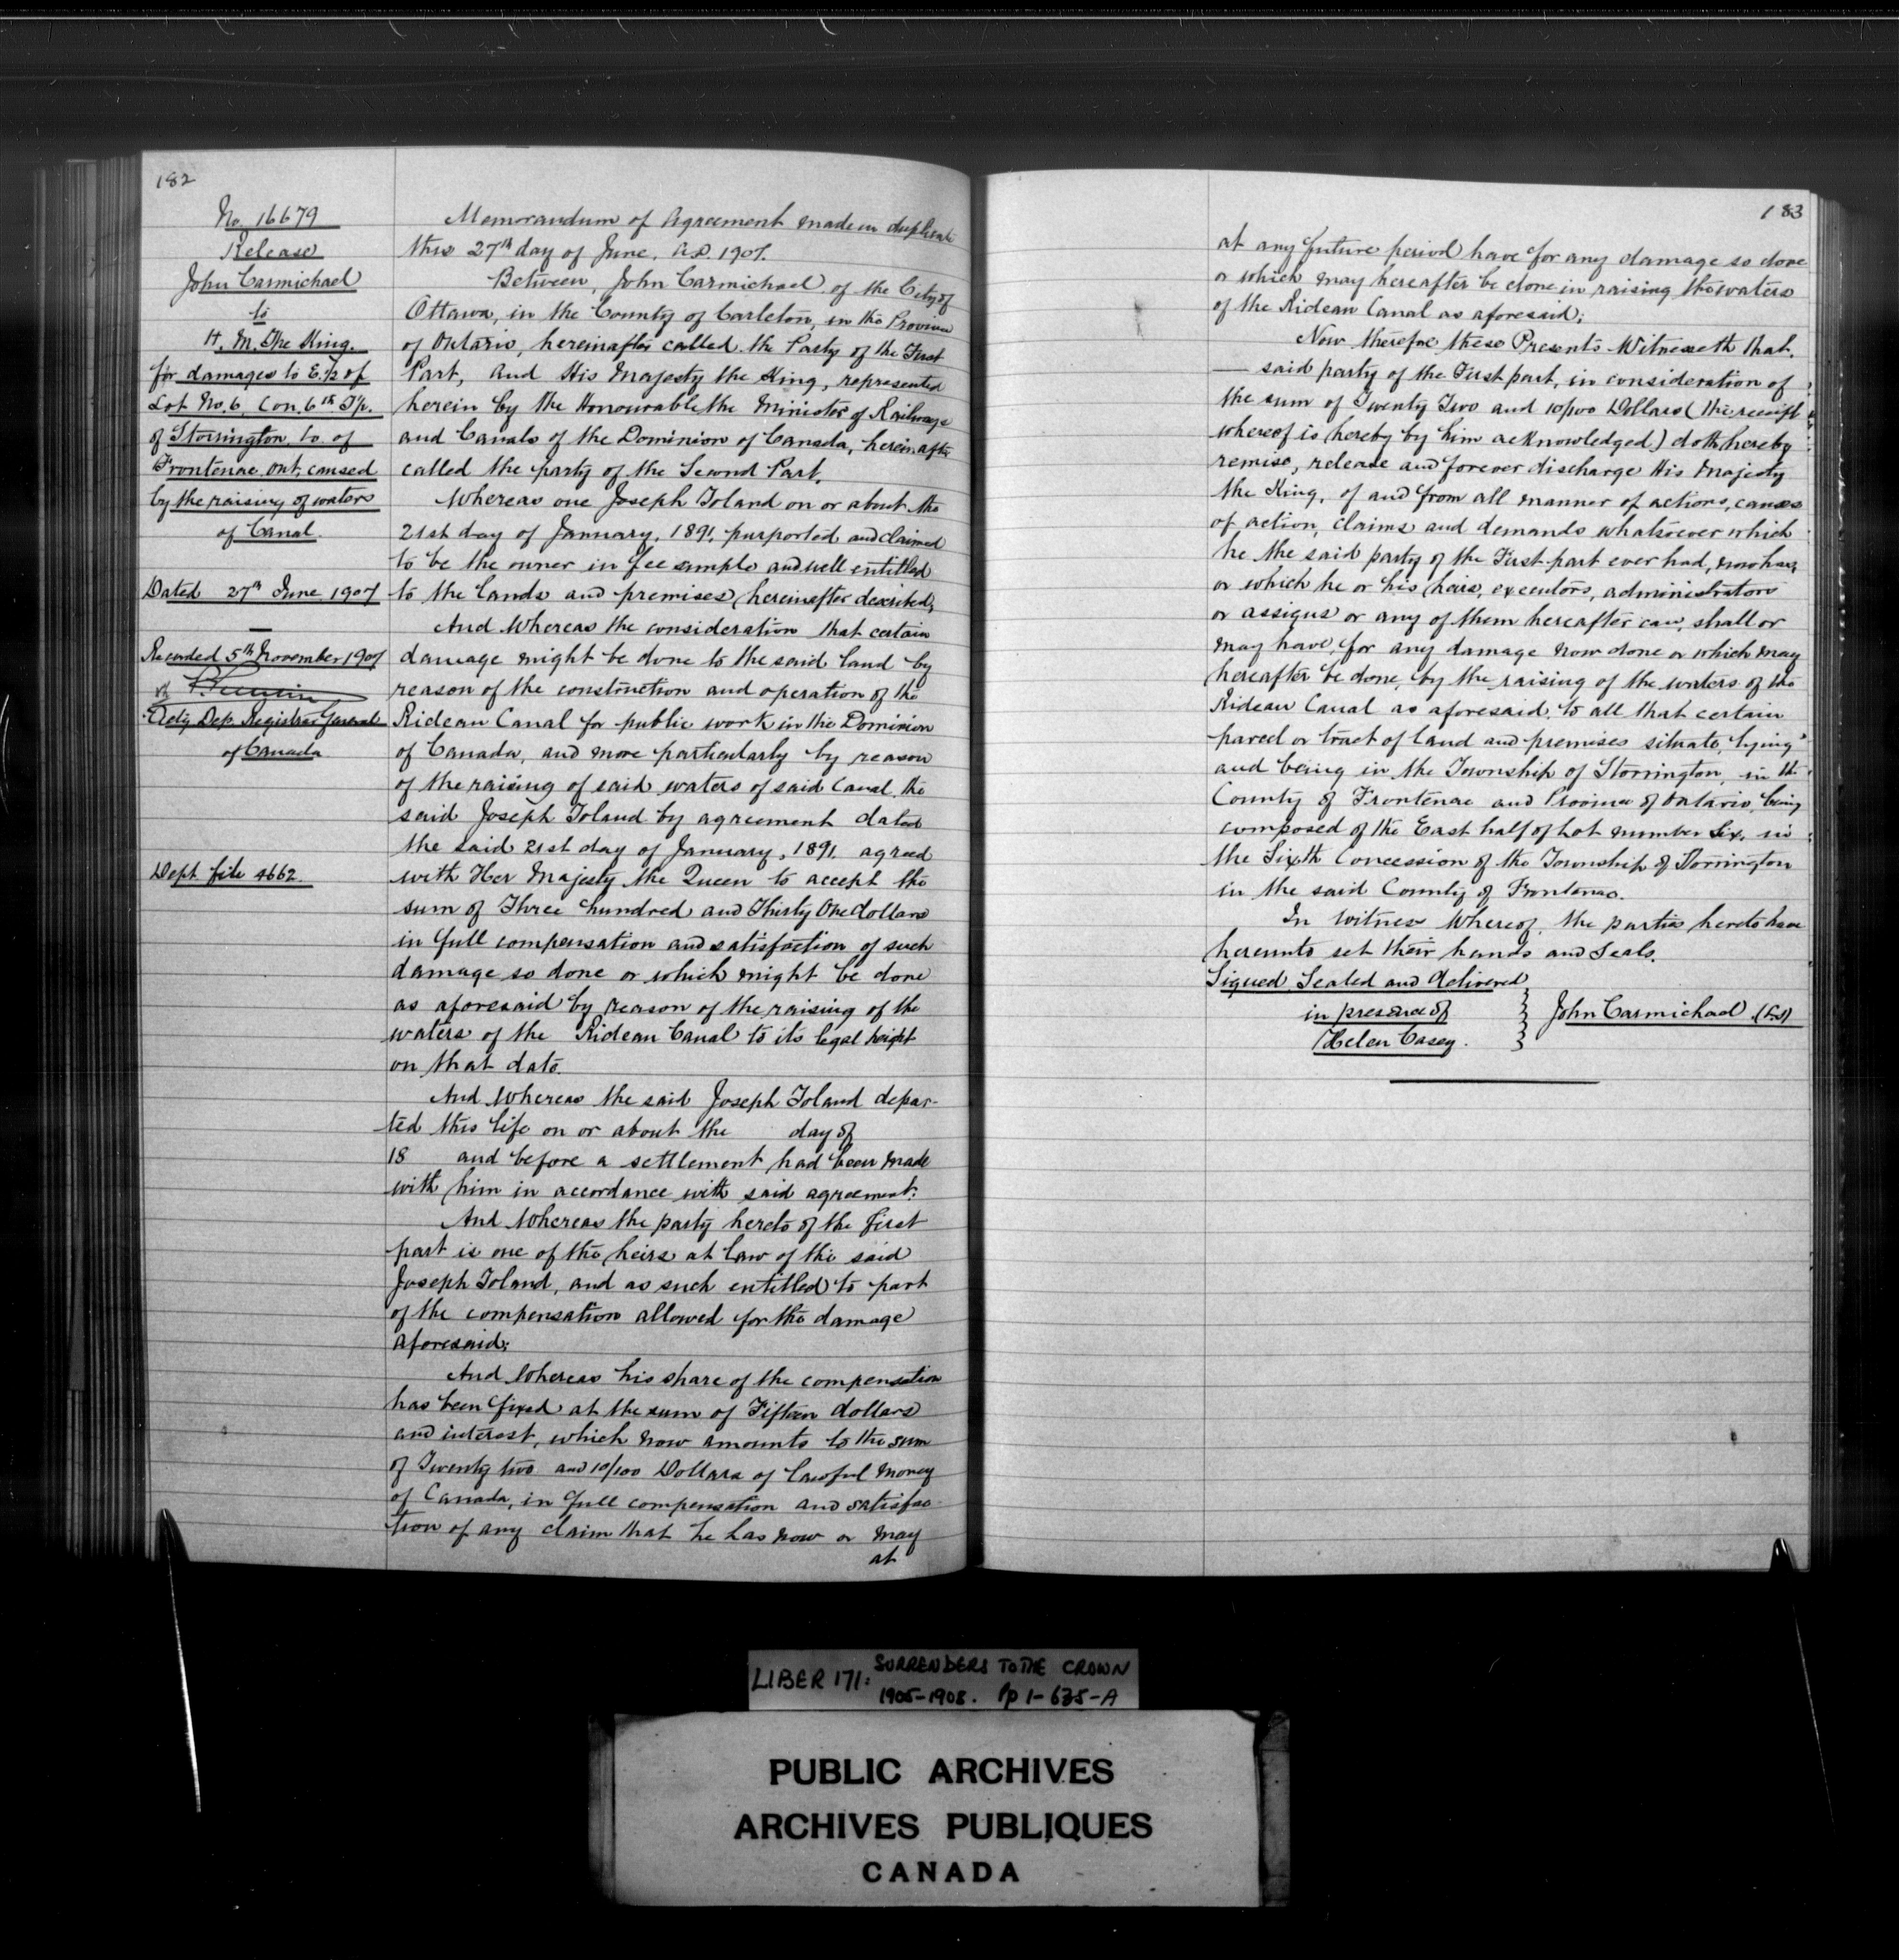 182
No. 16679
Release
John Carmichael
to
H. M. The King.
for damages to E. 1/2 of
Lot No. 6, Con. 6th T'p.
of Storrington Co. of
Frontenac. Ont. caused
by the raising of waters
of Canal.
Dated 27th June 1907
Recorded 5th November 1907
Actg Dep. Registrar General
of Canada
Dept file 4662.
Memorandum of Agreement made in duplicate
this 27th day of June, A.D. 1907.
Between, John Carmichael of the City of
Ottawa, in the County of Carleton, in the Province
of Ontario, hereinafter called the Party of the First
Part, and His Majesty the King, represented
herein by the Honourable the Minister of Railways
and Canals of the Dominion of Canada, hereinafter
called the party of the Second Part.
Whereas one Joseph Toland on or about the
21st day of January, 1891, purported and claimed
to be the owner in fee simple and well entitled
to the lands and premises hereinafter described;
And Whereas the consideration that certain
damage might be done to the said land by
reason of the construction and operation of the
Rideau Canal for public work in the Dominion
of Canada, and more particularly by reason
of the raising of said waters of said Canal, the
said Joseph Toland by agreement dated
the said 21st day of January, 1891, agreed
with Her Majesty the Queen to accept the
sum of Three hundred and Thirty One dollars
in full compensation and satisfaction of such
damage so done or which might be done
as aforesaid by reason of the raising of the
waters of the Rideau Canal to its legal height
on that date.
And Whereas the said Joseph Toland depar-
ted this life on or about the day of
18 and before a settlement had been made
with him in accordance with said agreement:
And Whereas the party hereto of the first
part is one of the heirs at law of the said
Joseph Toland, and as such entitled to part
of the compensation allowed for the damage
aforesaid;
And Whereas his share of the compensation
has been fixed at the sum of Fifteen dollars
and interest, which now amounts to the sum
of Twenty two and 10/100 Dollars of lawful money
of Canada, in full compensation and satisfac-
tion of any claim that he has now or may
at
183
at any future period have for any damage so done
or which may hereafter be done in raising the waters
of the Rideau Canal as aforesaid;
Now therefore these Presents Witnesseth that.
— said party of the First part, in consideration of
the sum of Twenty Two and 10/100 Dollars (the receipt
whereof is hereby by him acknowledged) doth hereby
remise, release and forever discharge His Majesty
the King, of and from all manner of actions, causes
of action, claims and demands whatsoever which
he the said party of the First part ever had, now has,
or which he or his heirs, executors, administrators
or assigns or any of them hereafter can, shall or
may have, for any damage now done or which may
hereafter be done, by the raising of the waters of the
Rideau Canal as aforesaid, to all that certain
parcel or tract of land and premises situate, lying
and being in the Township of Storrington, in the
County of Frontenac and Province of Ontario, being
composed of the East half of Lot number Six, in
the Sixth Concession of the Township of Storrington
in the said County of Frontenac.
In Witness Whereof, the parties hereto have
hereunto set their hands and Seals.
Signed Sealed and delivered
in presence of
Helen Casey.
John Carmichael (LS)
LIBER 171: SURRENDERS TO THE CROWN
1905-1908. Pp 1-635-A
PUBLIC ARCHIVES
ARCHIVES PUBLIQUES
CANADA